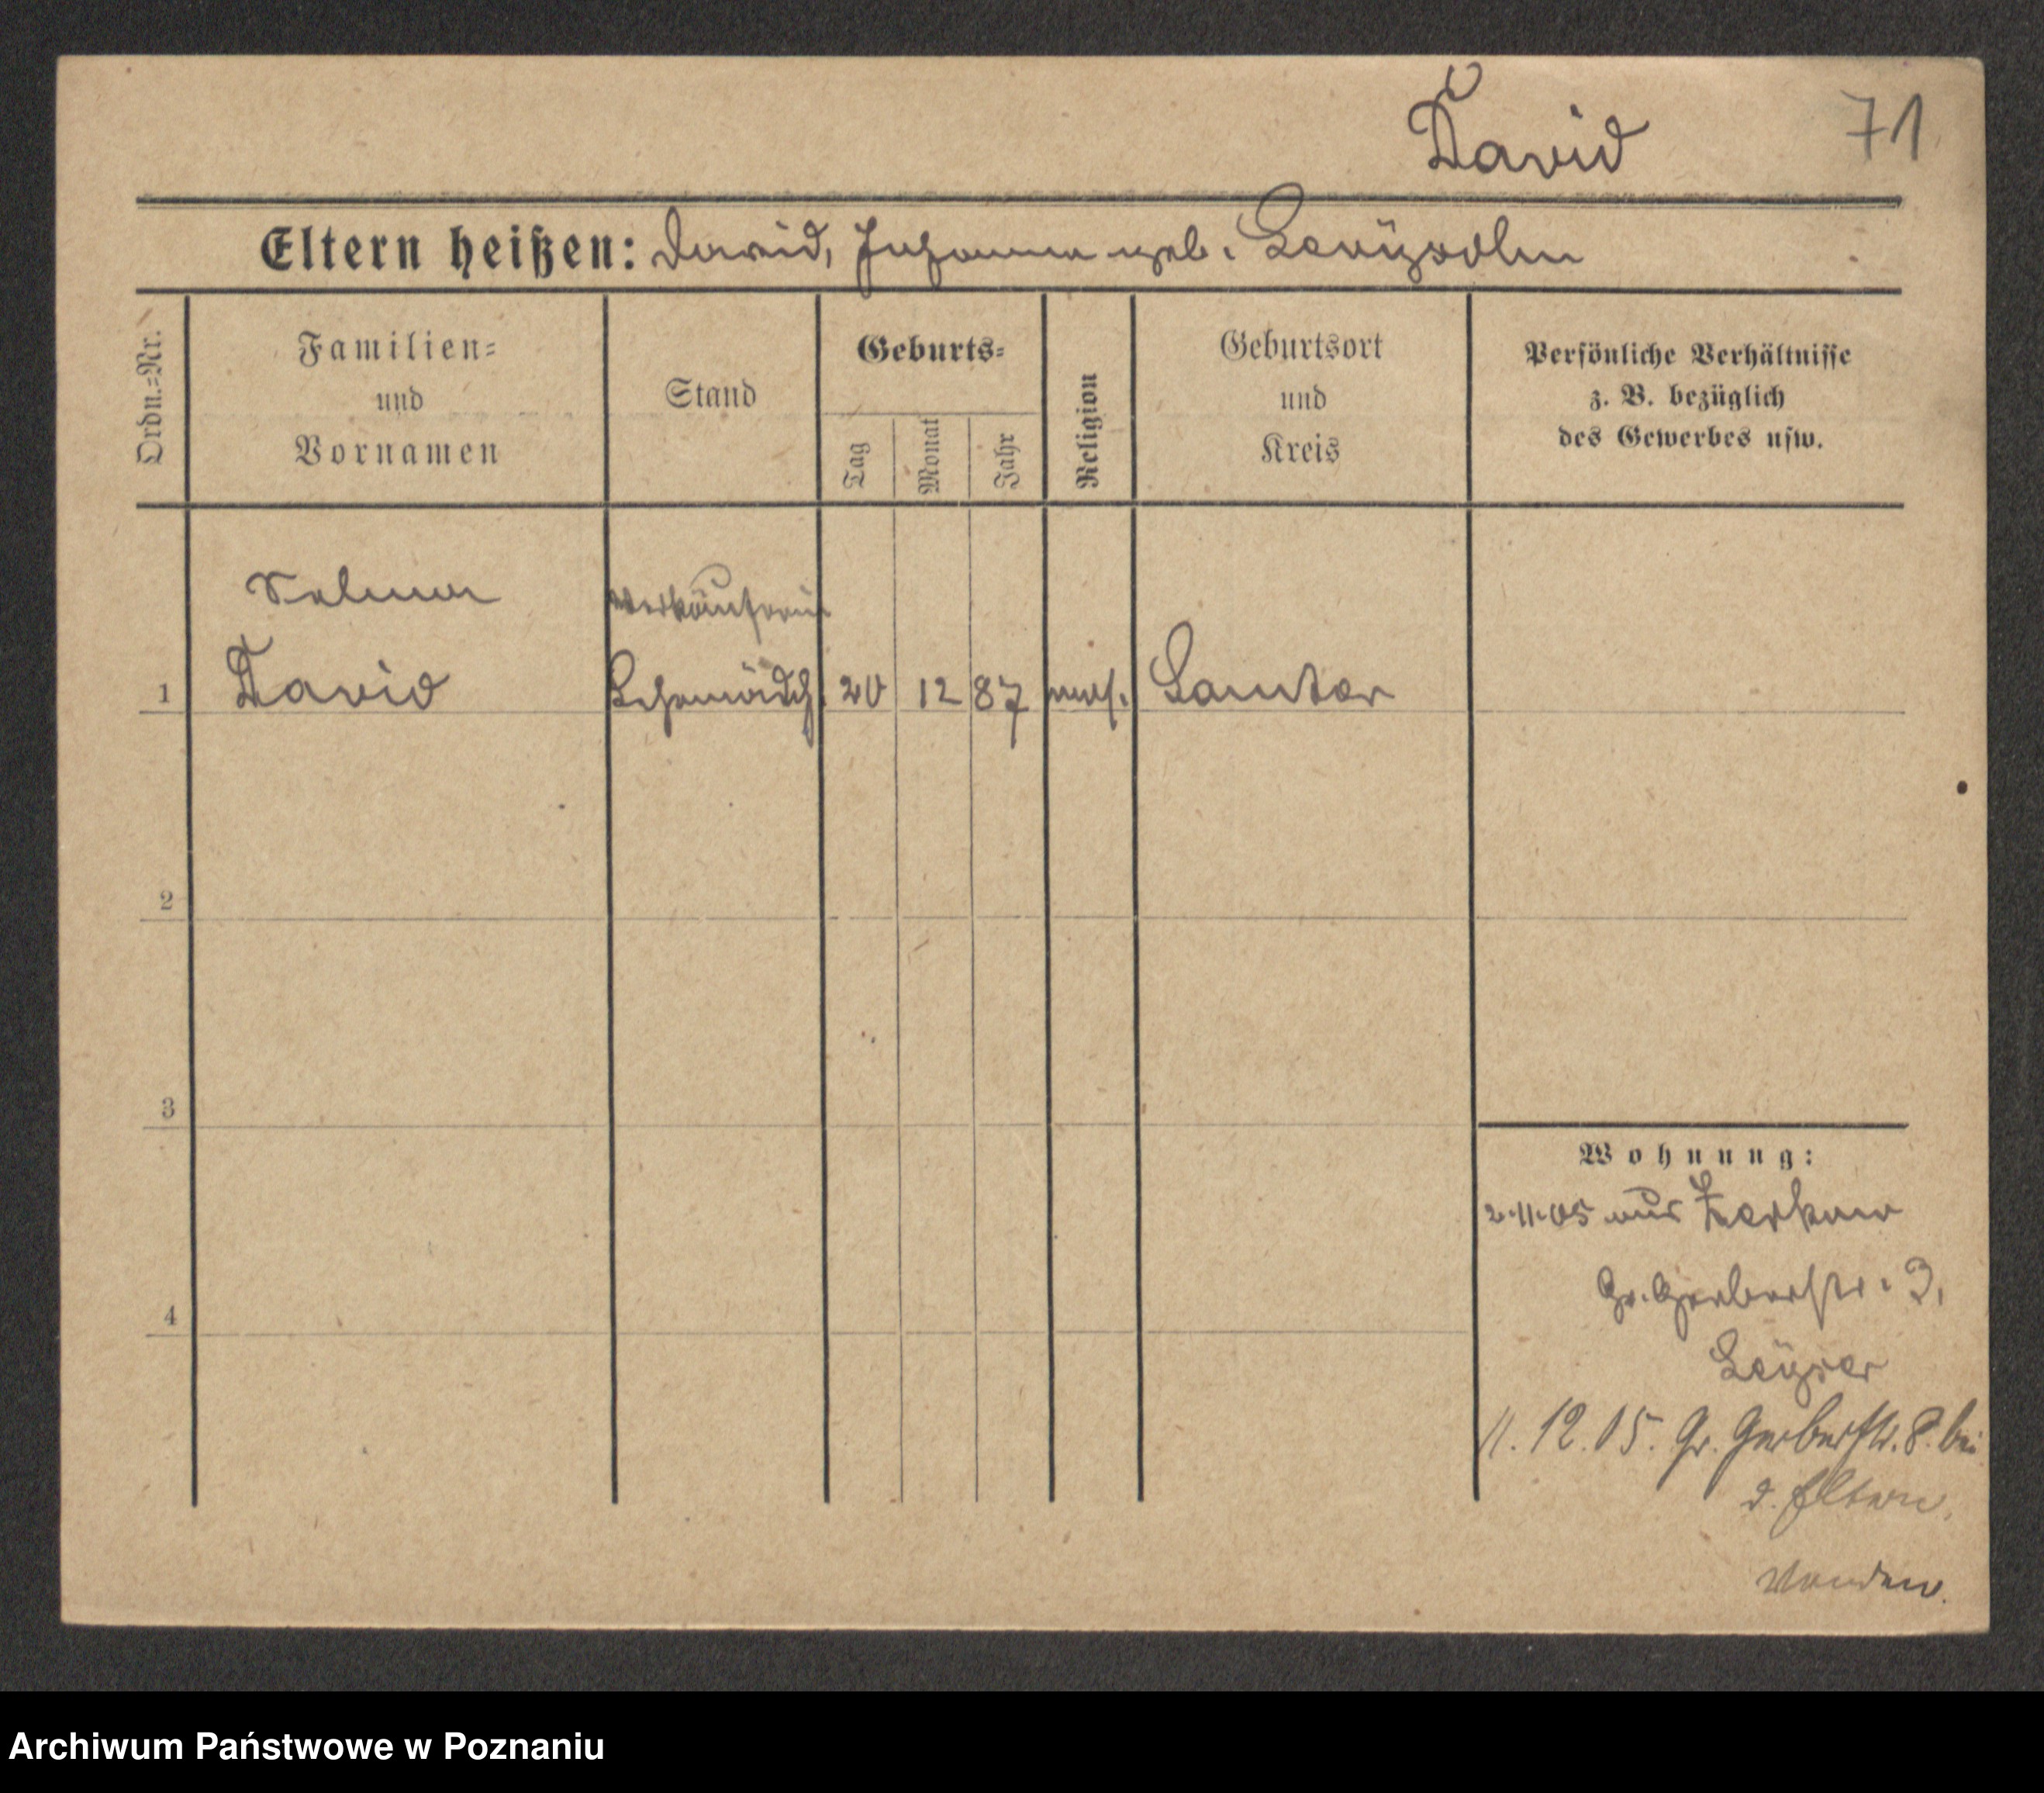 David
71
Eltern heißen: David, Johanna geb. Levysohn
Ordn.=Nr.
Familien=
und
Vornamen
Stand
Geburts=
Tag
Monat
Jahr
Religion
Geburtsort
und
Kreis
Persönliche Verhältnisse
z. B. bezüglich
des Gewerbes usw.
Selma
Verkäuferin
1 David 20 12 87 mos. Samter
2
3
4
Wohnung:
2.11.05 aus Zerkow
Gr. Gerberstr. 3,
Leyser
11. 12. 05. Gr. Gerberstr. 8. bei
d. Eltern.
Archiwum Państwowe w Poznaniu